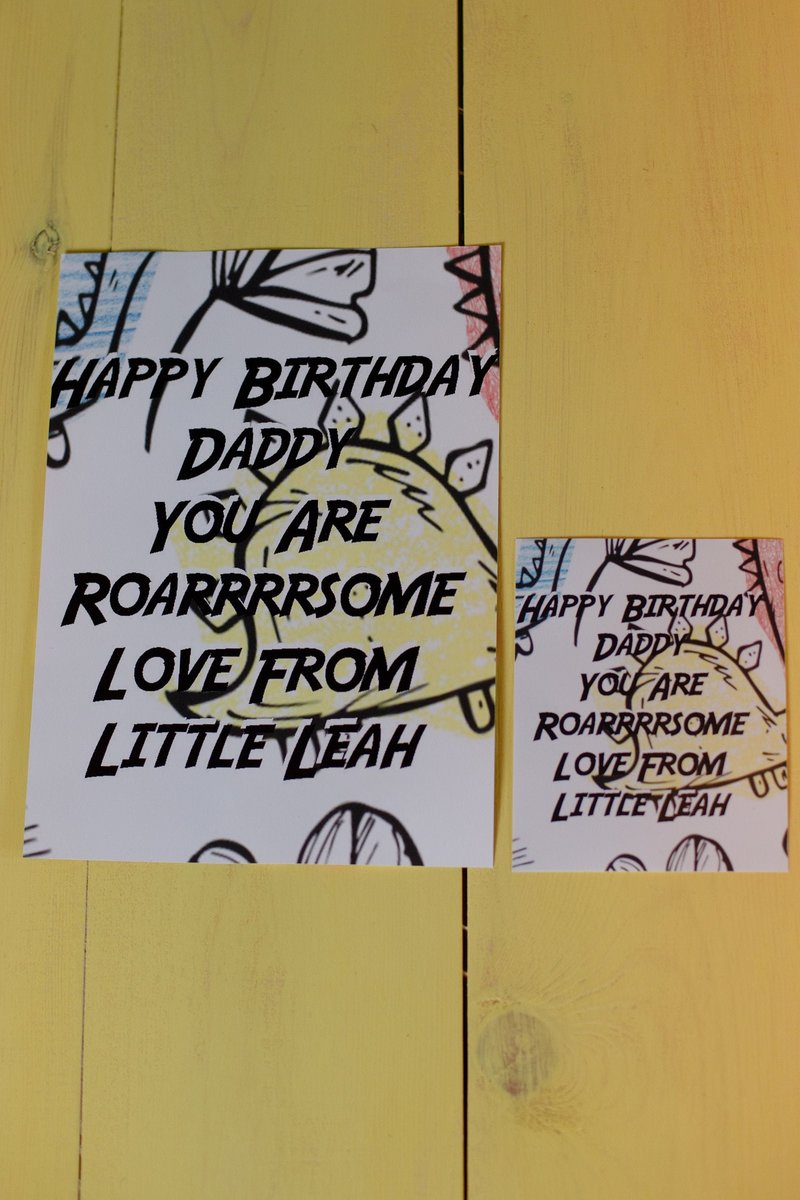 Happy Birthday
Daddy
you Are
Roarrrrsome
Love From
Little Leah
Happy Birthday
Daddy
you Are
Roarrrrsome
Love From
Little Leah